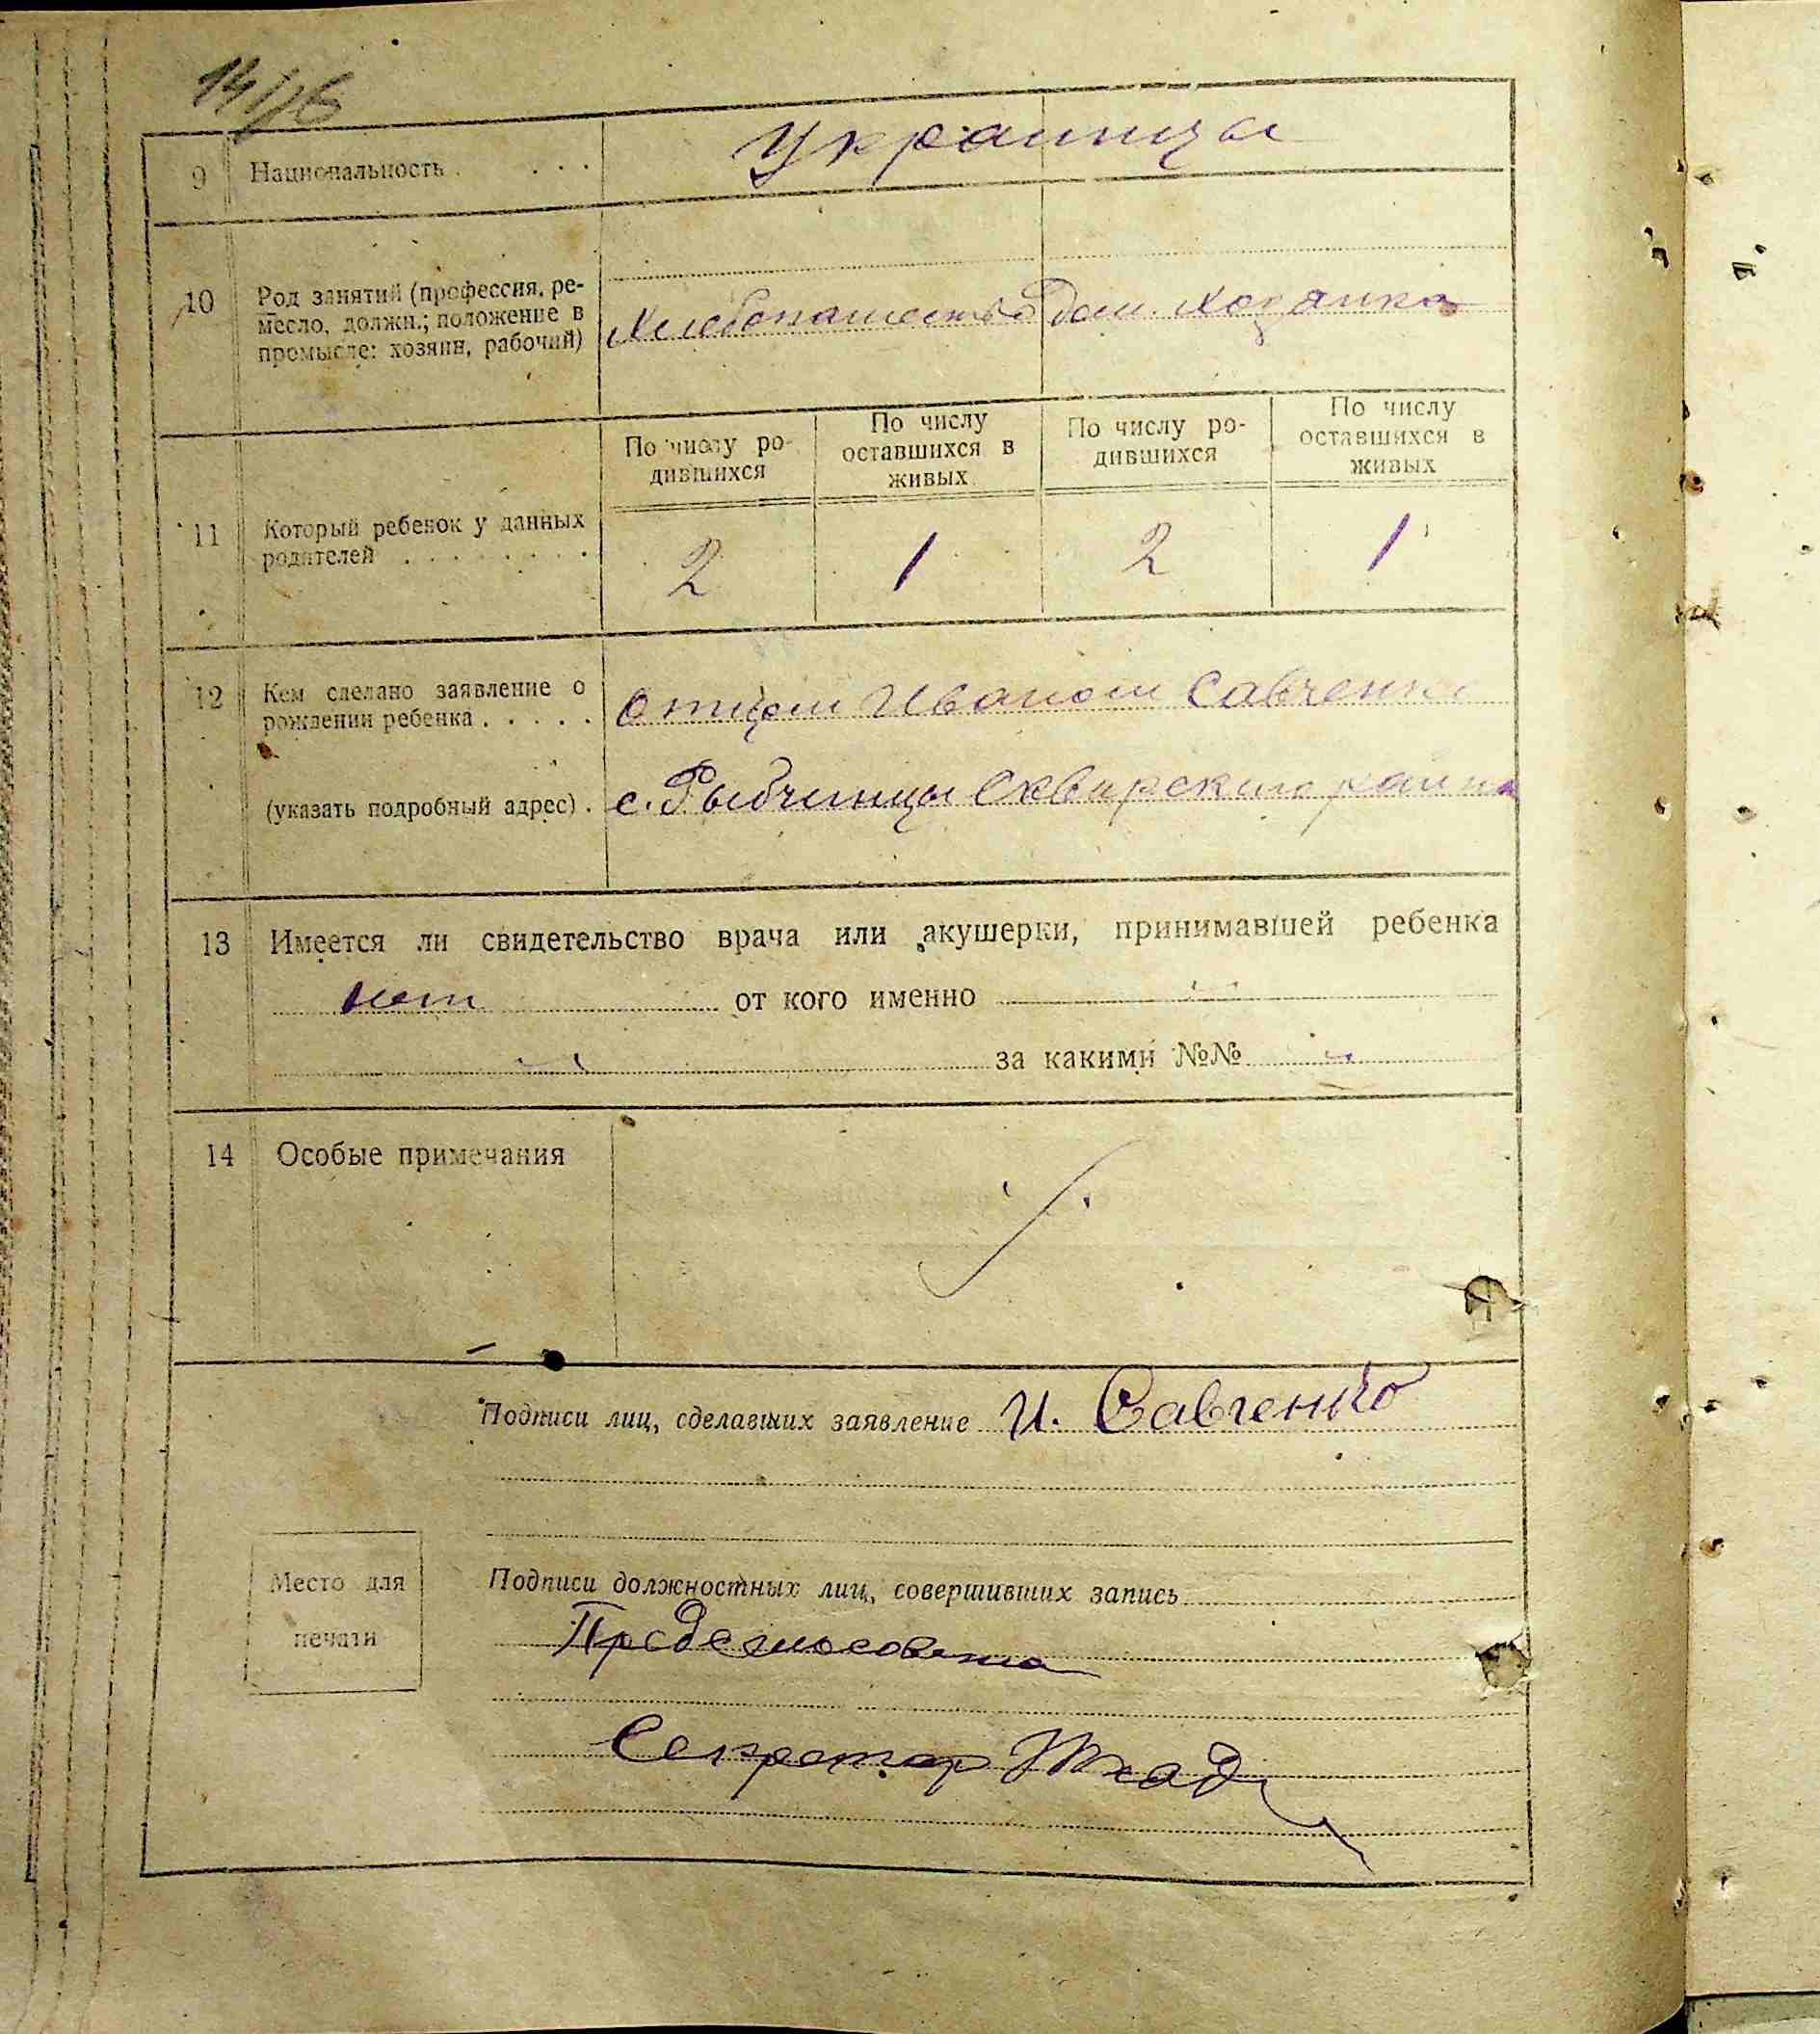 9 Национальность . . . . Украинцы
10 Род занятий (профессия, ре-
месло, должн.; положение в
промысле: хозяин, рабочий)
Хлебопашество дом. хозяйка
По числу ро-
дившихся
По числу
оставшихся в
живых
По числу ро-
дившихся
По числу
оставшихся в
живых
11 Который ребенок у данных
родителей . . . . . . . .
2 1 2 1
12 Кем сделано заявление о
рождении ребенка . . . . .
отцом Иваном Савченко
(указать подробный адрес) . с. Рыбчинцы Сквирского района
13 Имеется ли свидетельство врача или акушерки, принимавшей ребенка
нет от кого именно
за какими №№
14 Особые примечания
Подписи лиц, сделавших заявление И. Савченко
Место для
печати
Подписи должностных лиц, совершивших запись
Секретар